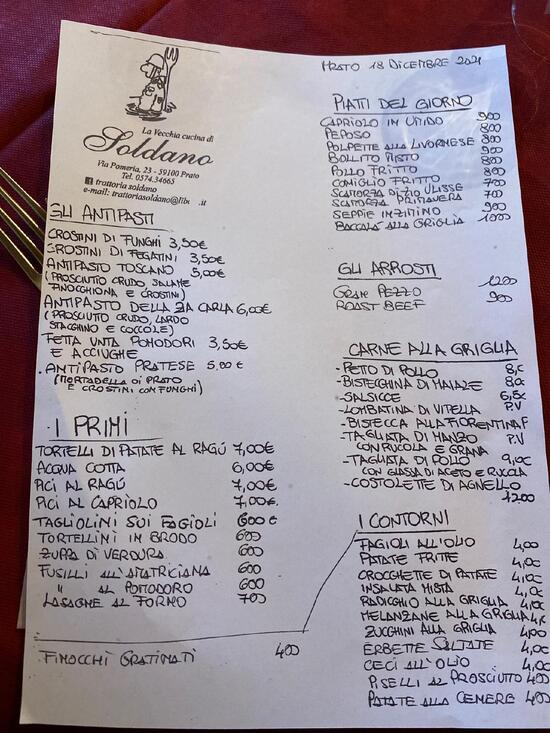 La Vecchia cucina di
Soldano
Via Pomeria, 23 - 59100 Prato
Tel. 0574.34665
trattoria soldano
e-mail: trattoriasoldano@libe .it
GLI ANTIPASTI
CROSTINI DI FUNGHI 3,50€
CROSTINI DI FEGATINI 3,50€
ANTIPASTO TOSCANO 5,00€
(PROSCIUTTO CRUDO SALAME
FINOCCHIONA E CROSTINI)
ANTIPASTO DELLA ZIA CARLA 6,00€
(PROSCIUTTO CRUDO, LARDO
STACCHINO E COCCOLE)
FETTA UNTA POMODORI 3,50€
E ACCIUGHE
ANTIPASTO PRATESE 5,00€
(MORTADELLA DI PRATO
E CROSTINI CON FUNGHI)
I PRIMI
TORTELLI DI PATATE AL RAGÚ 7,00€
ACQUA COTTA 6,00€
PICI AL RAGÚ 7,00€
PICI AL CAPRIOLO 7,00€
TAGLIOLINI SUI FAGIOLI 600€
TORTELLINI IN BRODO 600
ZUPPA DI VERDURA 600
FUSILLI ALL'AMATRICIANA 600
" AL POMODORO 600
LASAGNE AL FORNO 700
FINOCCHI GRATINATI 400
PRATO 18 DICEMBRE 2021
PIATTI DEL GIORNO
CAPRIOLO IN UMIDO 900
PEPOSO 800
POLPETTE ALLA LIVORNESE 800
BOLLITO MISTO 900
POLLO FRITTO 800
CONIGLIO FRITTO 800
SCATORZA RIZZO ULISSE 700
SCATORZA PRIMAVERA 700
SEPPIE INZIMINO 900
BACCALÀ ALLA GRIGLIA 1000
GLI ARROSTI
GRAN PEZZO 1200
ROAST BEEF 900
CARNE ALLA GRIGLIA
-PETTO DI POLLO 8,0
-BISTECHINA DI MAIALE 8,0
-SALSICCE 6,5
-LOMBATINA DI VITELLA P.V
-BISTECCA ALLA FIORENTINA P
-TAGLIATA DI MANZO P.V
CON RUCOLA E GRANA
-TAGLIATA DI POLLO 9,00
CON GLASSA DI ACETO E RUCOLA
-COSTOLETTE DI AGNELLO
1200
I CONTORNI
FAGIOLI ALL'OLIO 4,00
PATATE FRITTE 4,00
CROCCHETTE DI PATATE 4,00
INSALATA MISTA 4,00
RADICCHIO ALLA GRIGLIA 4,00
MELANZANE ALLA GRIGLIA 4,0
ZUCCHINI ALLA GRIGLIA 4,00
ERBETTE SALTATE 4,00
CECI ALL'OLIO 4,00
PISELLI AL PROSCIUTTO 400
PATATE ALLA CENERE 400